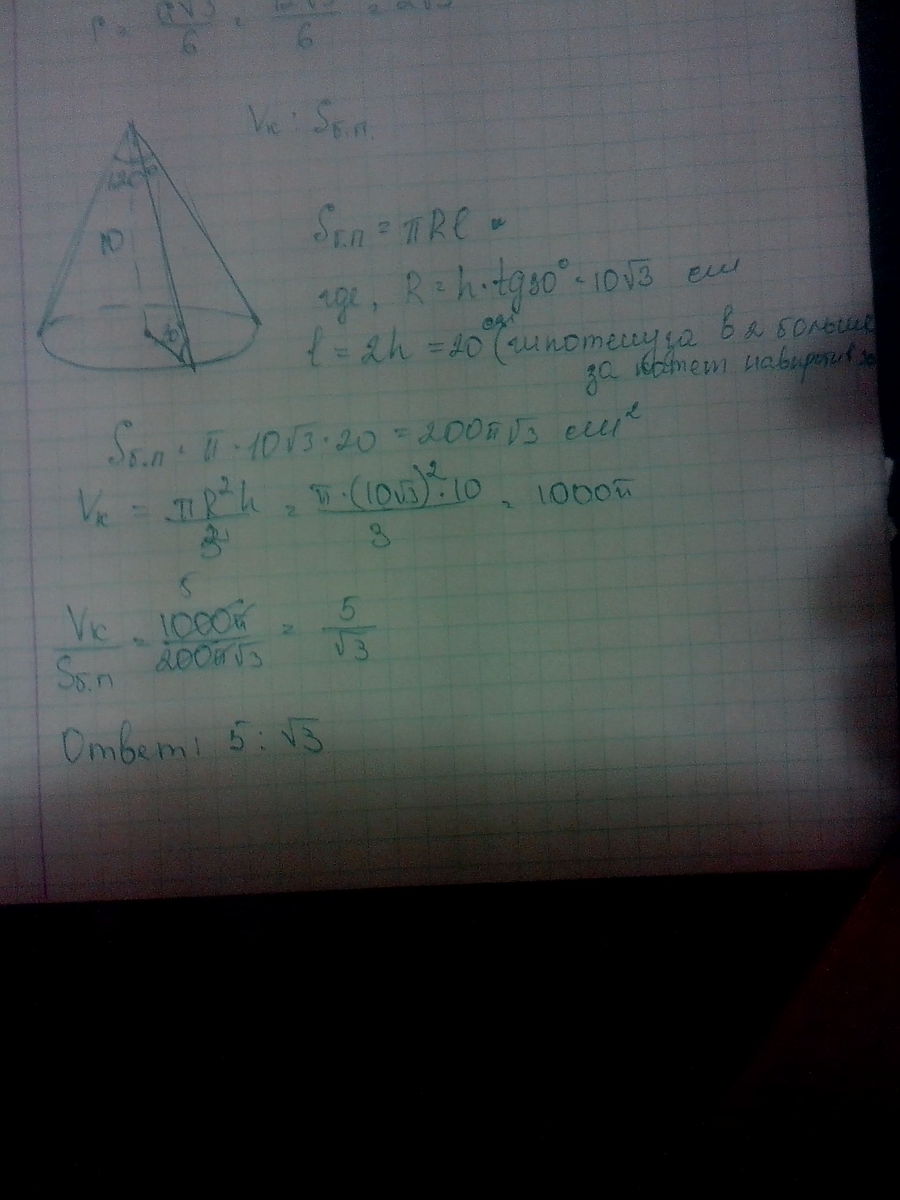 r = a√3/6 = 12√3/6 = 2√3
Vк : Sб.п.
120°
10
Sб.п = πRl
где, R = h·tg30° = 10√3 см
l = 2h = 20 см (гипотенуза в 2 больше
за катет
Sб.п = π·10√3·20 = 200π√3 см²
Vк = πR²h/3 = π·(10√3)²·10/3 = 1000π
5
Vк/Sб.п = 1000π/200π√3 = 5/√3
Ответ: 5 : √3